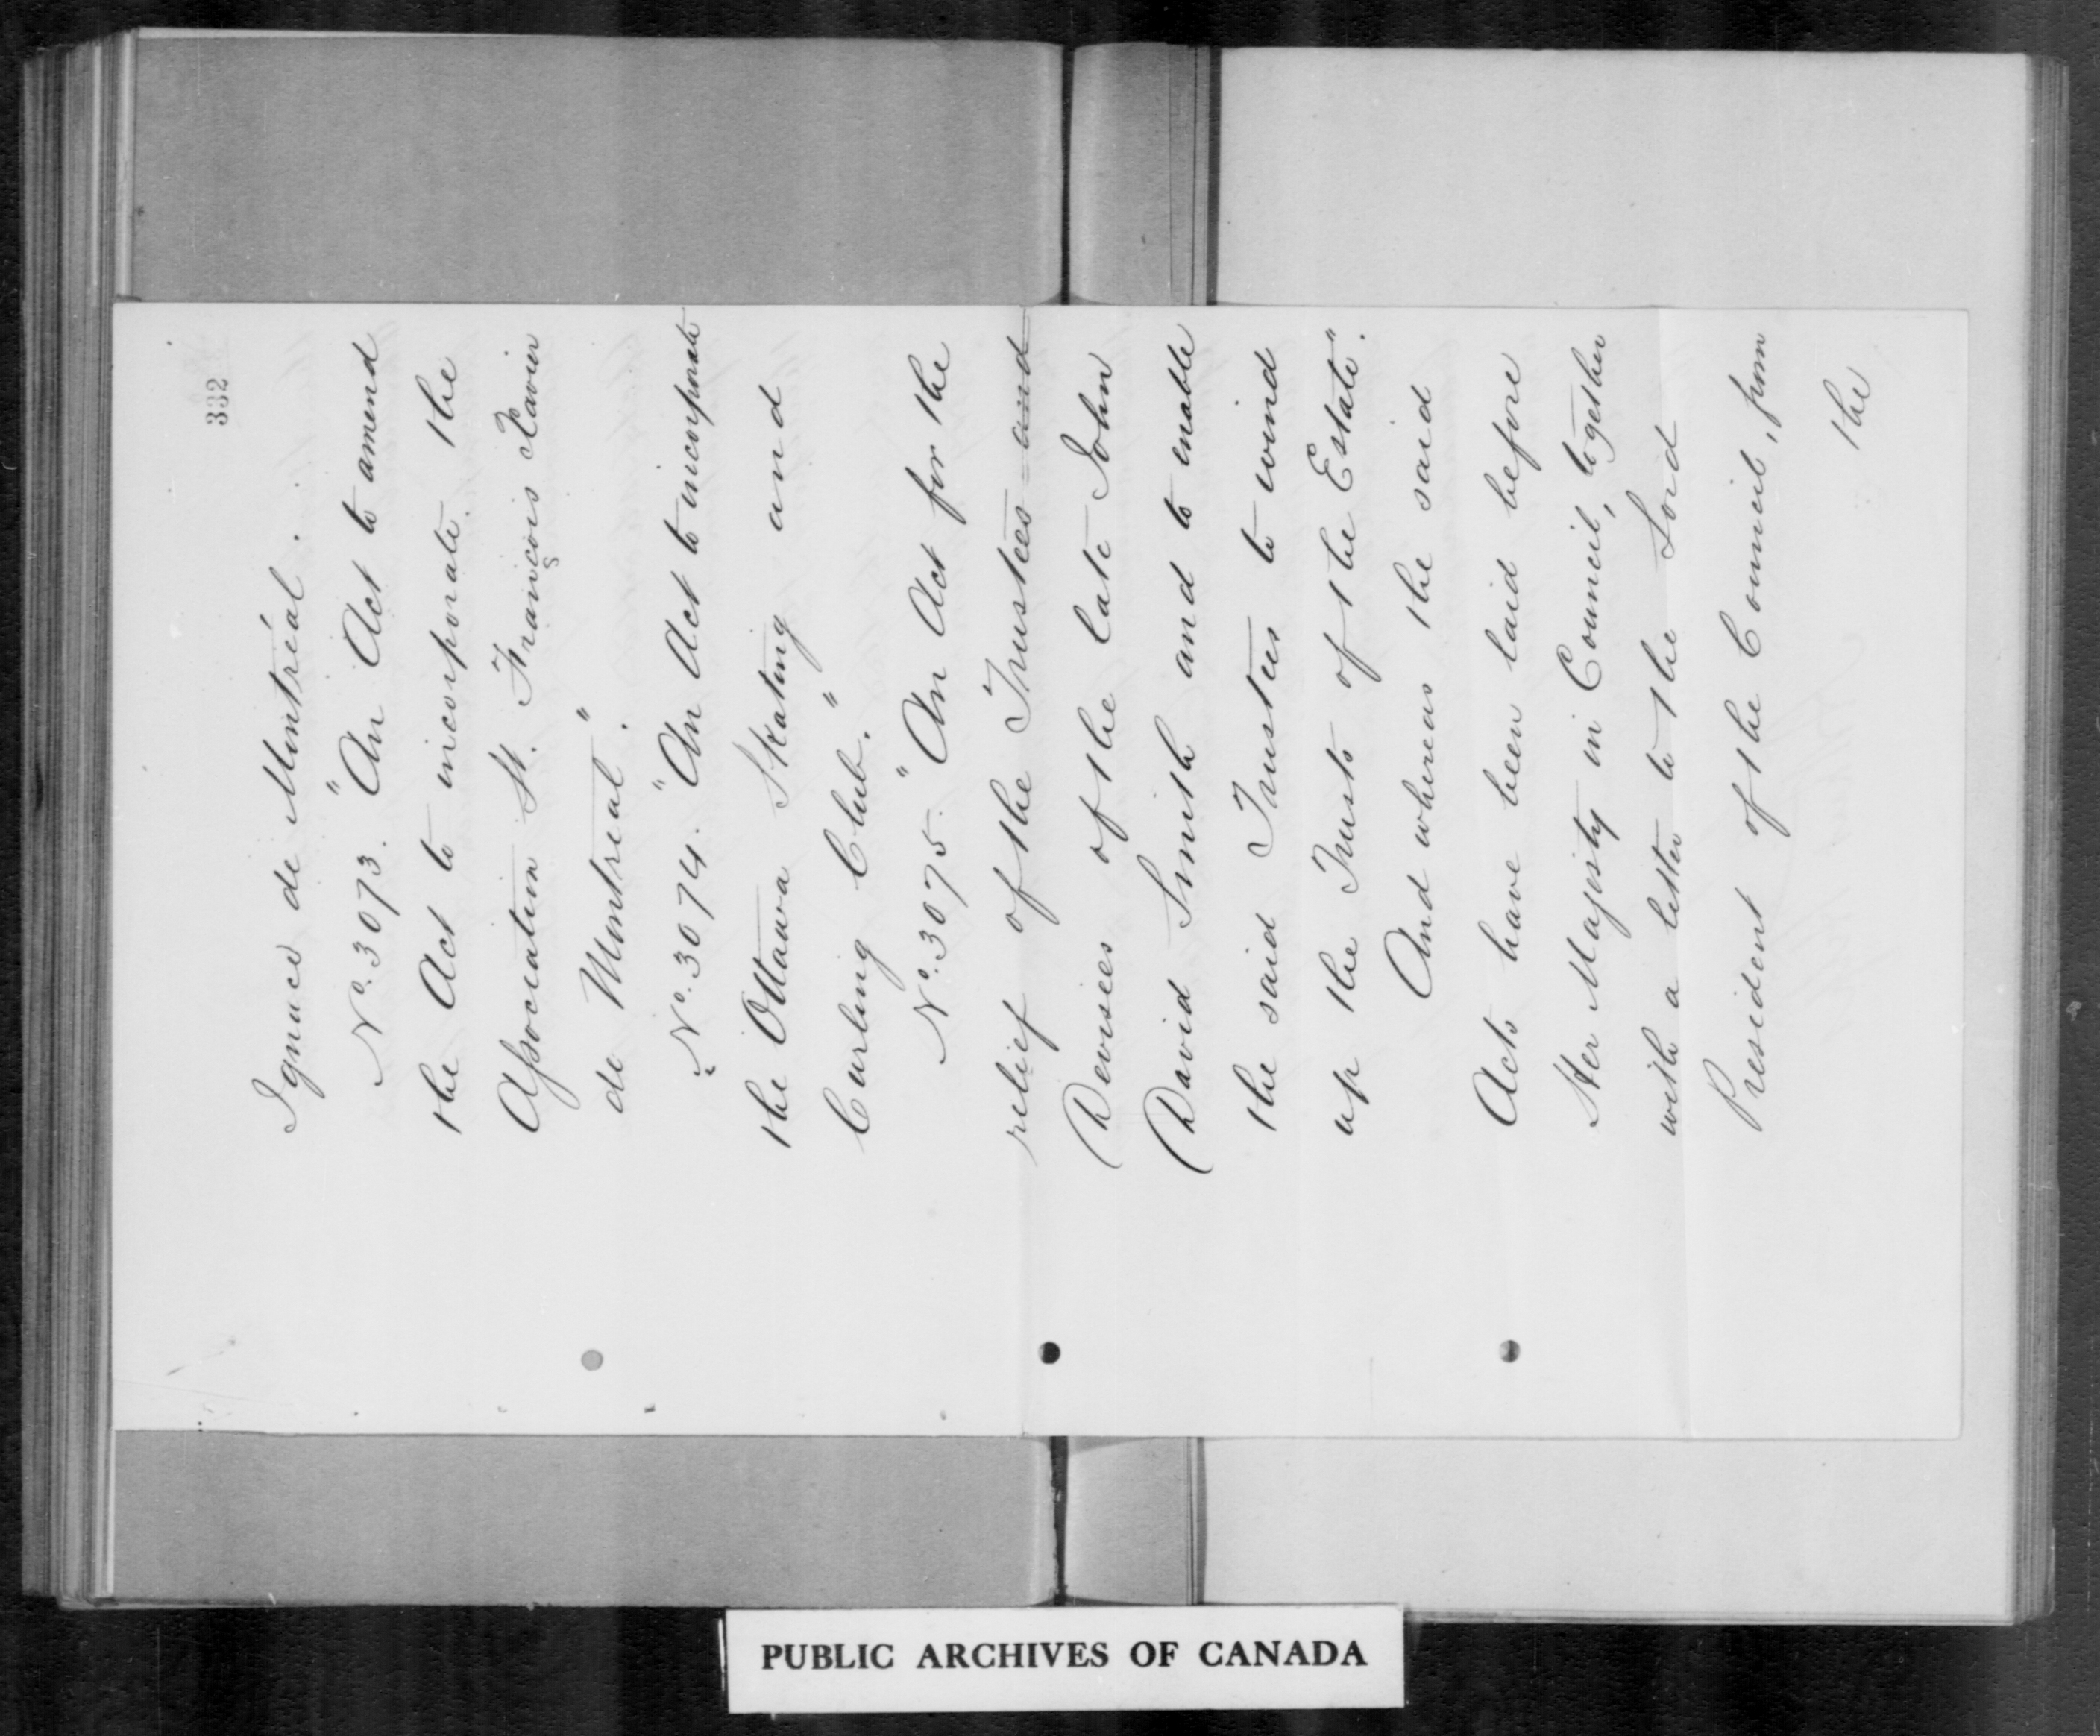 332
Ignace de Montréal.
No. 3073. "An Act to amend
the Act to incorporate the
Association St. François Xavier
de Montreal".
No. 3074. "An Act to incorporate
the Ottawa Skating and
Curling Club."
No. 3075. "An Act for the
relief of the Trustees and
Devisees of the late John
David Smith and to enable
the said Trustees to wind
up the Trusts of the Estate".
And whereas the said
Acts have been laid before
Her Majesty in Council, together
with a letter to the Lord
President of the Council, from
the
PUBLIC ARCHIVES OF CANADA